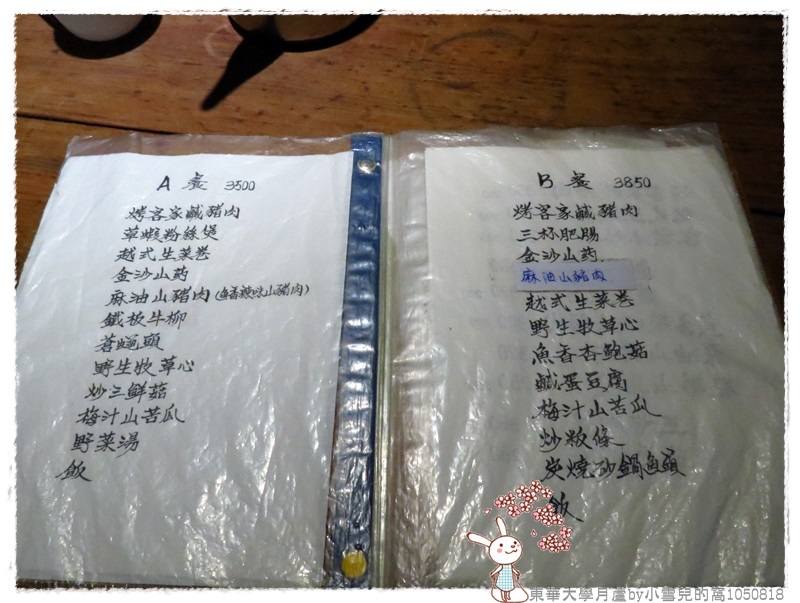 A 套 3500
烤客家鹹豬肉
草蝦粉絲煲
越式生菜卷
金沙山药
麻油山豬肉(魚香辣味山豬肉)
鐵板牛柳
蒼蠅頭
野生牧草心
炒三鮮菇
梅汁山苦瓜
野菜湯
飯
B 套 3850
烤客家鹹豬肉
三杯肥腸
金沙山药
麻油山豬肉
越式生菜卷
野生牧草心
魚香杏鮑菇
鹹蛋豆腐
梅汁山苦瓜
炒粄條
炭燒砂鍋魚頭
飯
東華大學月廬by小雪兒的窩1050818